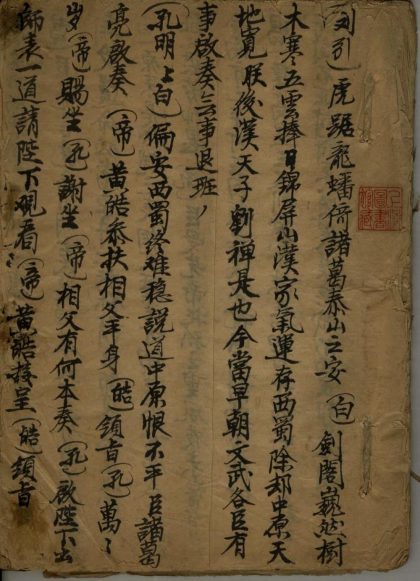 引)虎踞龍蟠衛諸葛泰山之安(白)劍閣巍然樹
木寒五雲捧日錦屏山漢家氣運存西蜀除却中原天
地寬朕後漢天子劉禅是也今當早朝文武各臣有
事啟奏无事退班
(孔明上白)偏安西蜀终难稳説道中原恨不平臣諸葛
亮啟奏(帝)黄皓参扶相父平身(皓)領旨(孔)萬々
岁(帝)賜坐(孔)謝坐(帝)相父有何本奏(孔)啟陛下出
師表一道請陛下观看(帝)黄皓接呈(皓)領旨